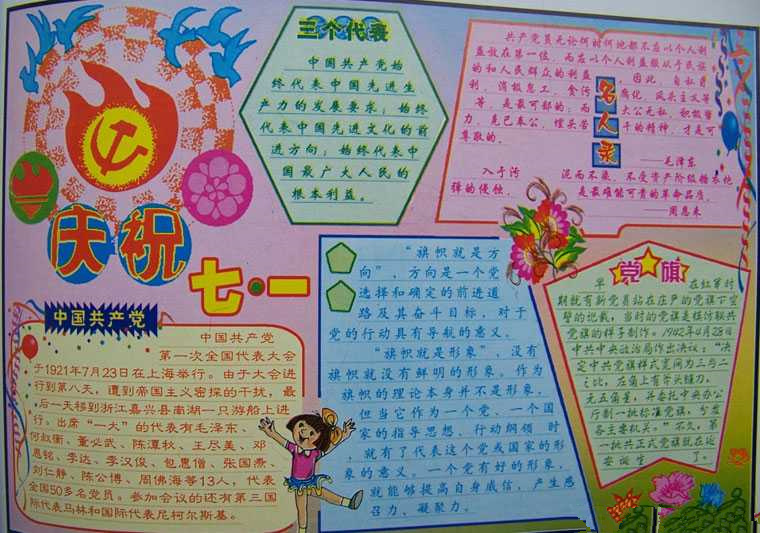 三个代表
中国共产党始
终代表中国先进生
产力的发展要求；始终
代表中国先进文化的前
进方向；始终代表中
国最广大人民的
根本利益。
名人录
共产党员无论何时何地都不应以个人利
益放在第一位，而应以个人利益服从于民族
的和人民群众的利益，因此，自私自
利，消极怠工，贪污腐化，风头主义等
等，是最可鄙的；而大公无私，积极努
力，克己奉公，埋头苦干的精神，才是可
尊敬的。
——毛泽东
入于污泥而不染，不受资产阶级糖衣炮
弹的侵蚀，是最难能可贵的革命品质。
周恩来
庆祝
七·一
中国共产党
中国共产党
第一次全国代表大会
于1921年7月23日在上海举行。由于大会进
行到第八天，遭到帝国主义密探的干扰，最
后一天移到浙江嘉兴县南湖一只游船上进
行。出席“一大”的代表有毛泽东、
何叔衡、董必武、陈潭秋、王尽美、邓
恩铭、李达、李汉俊、包惠僧、张国焘、
刘仁静、陈公博、周佛海等13人，代表
全国50多名党员。参加会议的还有第三国
际代表马林和国际代表尼柯尔斯基。
“旗帜就是方
向”，方向是一个党
选择和确定的前进道
路及其奋斗目标，对于
党的行动具有导航的意义。
“旗帜就是形象”，没有
旗帜就没有鲜明的形象。作为
旗帜的理论本身并不是形象，
但当它作为一个党、一个国
家的指导思想、行动纲领时
，就有了代表这个党或国家的形
象的意义。一个党有好的形象，
就能够提高自身威信，产生感
召力、凝聚力。
党旗
早在红军时
期就有新党员站在庄严的党旗下宣
誓的记载，当时的党旗是模仿联共
党旗的样子制作。1942年4月28日
中共中央政治局作出决议：“决
定中共党旗样式宽阔为三与二
之比，左角上有斧头镰刀，
无五角星，并委托中央办公
厅制一批标准党旗，分发
各主要机关。”不久，第
一批共正式党旗就在延
安诞生了。